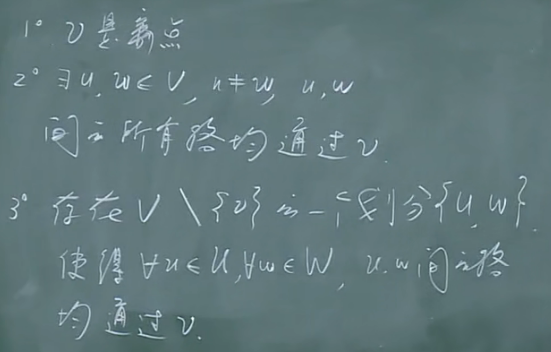 1° v是割点
2° ∃u, w∈V, u≠w, u, w
间之所有路均通过v.
3° 存在V\{v}的一个划分{U, W},
使得∀u∈U,∀w∈W, u.w间之路
均通过v.